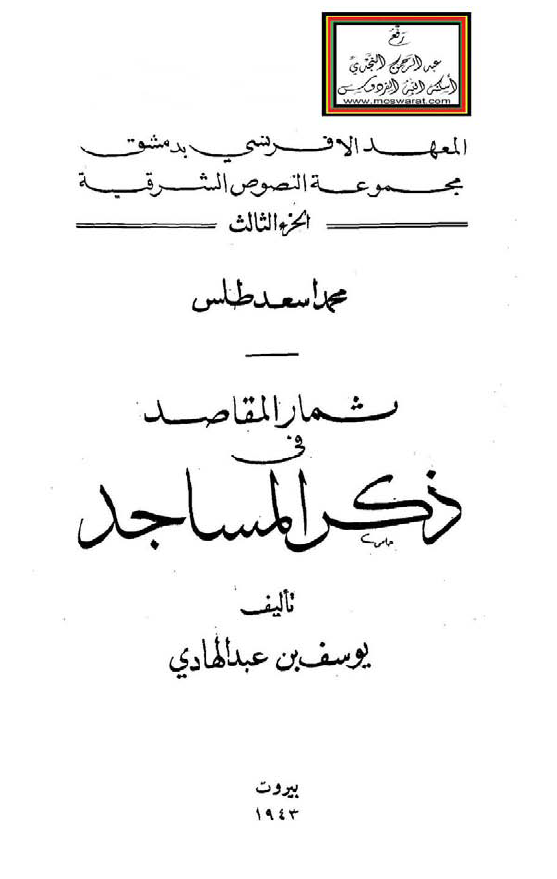 رفع
عبد الرحمن النجدي
أسكنه الله الفردوس
www.moswarat.com
المعهد الافرنسي بدمشق
مجموعة النصوص الشرقية
الجزء الثالث
محمد اسعد طلس
ثمار المقاصد
في
ذكر المساجد
تأليف
يوسف بن عبد الهادي
بيروت
١٩٤٣